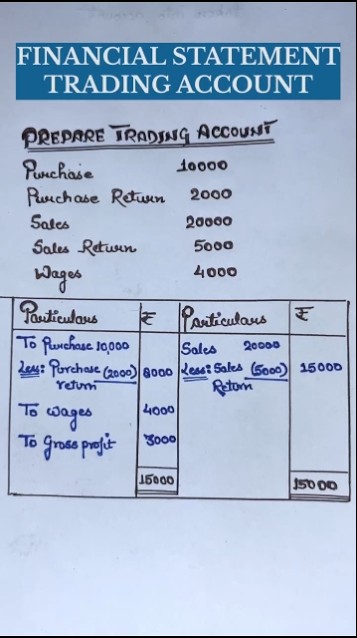 FINANCIAL STATEMENT
TRADING ACCOUNT
PREPARE TRADING ACCOUNT
Purchase 10000
Purchase Return 2000
Sales 20000
Sales Return 5000
Wages 4000
Particulars ₹ Particulars ₹
To Purchase 10,000 Sales 20000
Less: Purchase (2000) 8000 Less: Sales (5000) 15000
return Return
To wages 4000
To Gross profit 3000
15000 15000